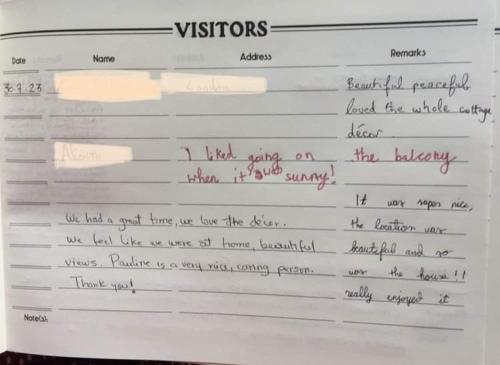 VISITORS
Date Name Address Remarks
30.7.23 London Beautiful peaceful
loved the whole cottage
décor.
I liked going on the balcony
when it was sunny!
It was super nice,
We had a great time, we love the décor. the location was
We feel like we were at home, beautiful beautiful and so
views. Pauline is a very nice, caring person. was the house!!
Thank you! really enjoyed it
Note(s):